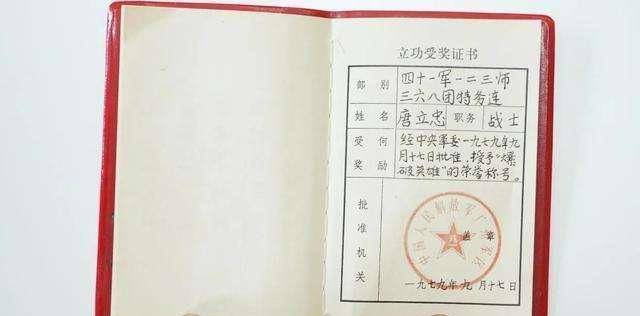 立功受奖证书
部别
四十一军一二三师
三六八团特务连
姓名
唐立忠
职务
战士
受何奖励
经中央军委一九七九年九
月十七日批准，授予“爆
破英雄”的荣誉称号。
批准机关
中国人民解放军广州军区
盖章
一九七九年九月十七日